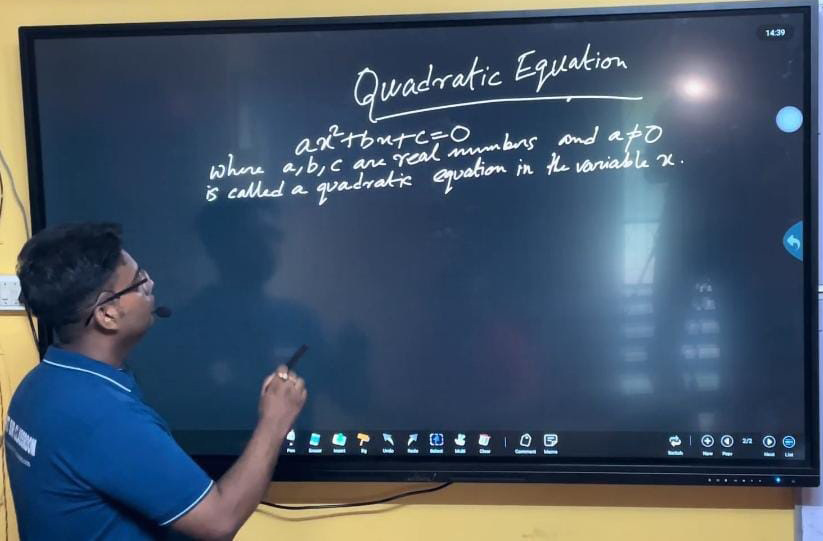 14:39
Quadratic Equation
ax²+bx+c=0
where a, b, c are real numbers and a≠0
is called a quadratic equation in the variable x.
Pen Eraser Insert Undo Redo Select Multi Clear Comment Switch New Prev 2/2 Next List